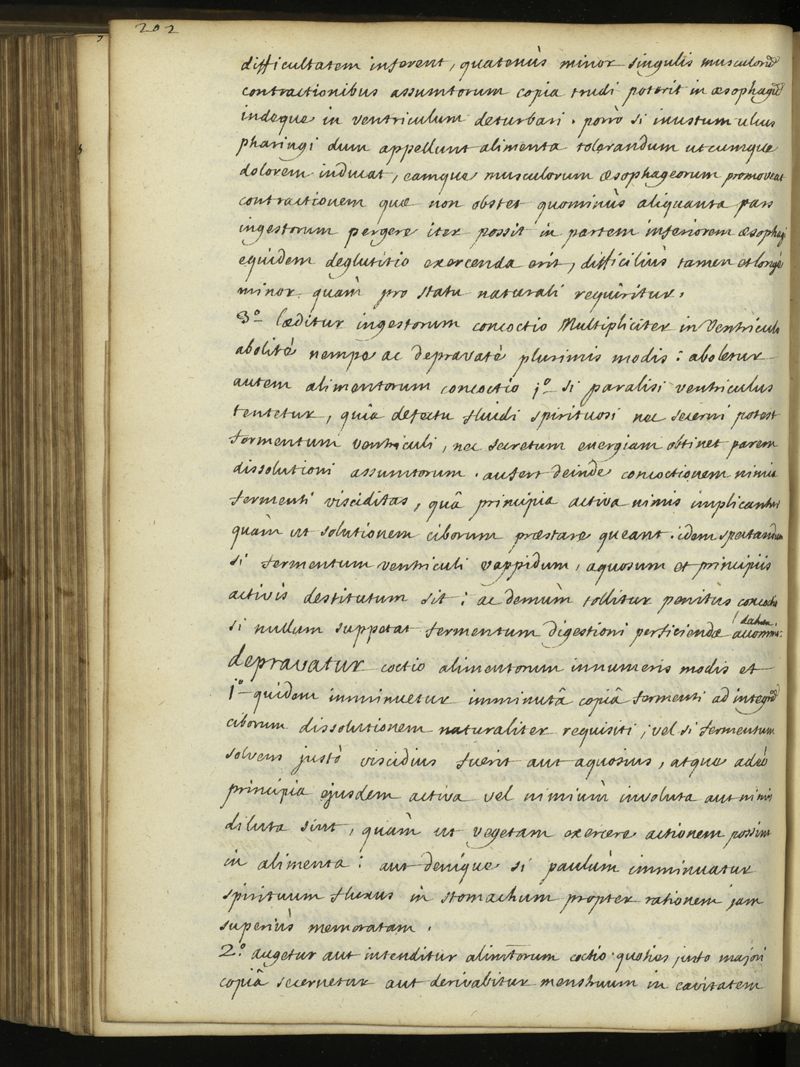 202
difficultatem inferent, quatenùs minor singulis musculorũ
contractionibus assumtorum copia trudi poterit in œsophagũ
indeque in ventriculum deturbari. porrò si inustum ulcus
pharingi dum appellunt alimenta tolerandum utcumque
dolorem inducat, eamque musculorum œsophageorum promoveat
contractionem quæ non obstet quominùs aliquanta pars
ingestorum pergere iter possit in partem inferiorem œsophagi
equidem deglutitio exercenda erit, difficiliùs tamen et longè
minor quàm pro statu naturali requiritur.
3.º læditur ingestorum concoctio Multipliciter in Ventriculo
abolitè nempe ac depravatè plurimis modis: aboletur
autem alimentorum concoctio 1.º si paralisi ventriculus
tentetur, quia defectu fluidi spirituosi nec secerni potest
fermentum ventriculi, nec secretum energiam obtinet parem
dissolutioni assumtorum. aufert deinde concoctionem nimia
fermenti visciditas, quâ principia activa nimis implicantur
quàm ut solutionem ciborum præstare queant. idem spectandum
si fermentum ventriculi vappidum, aquosum et principiis
activis destitutum sit: ac demùm tollitur penitùs concoctio
si nullum suppetat fermentum digestioni perficiendæ
depravatur coctio alimentorum innumeris modis et
1.º quidem imminuetur imminutâ copiâ fermenti ad integrã
ciborum dissolutionem naturaliter requisiti, vel si fermentum
solvens justò viscidius fuerit aut aquosius, atque adeò
principia ejusdem activa vel nimiùm involuta aut nimis
diluta sint, quàm ut vegetam exercere actionem possint
in alimenta: aut denique si paulùm imminuatur
spirituum fluxus in stomachum propter rationem jam
superiùs memoratam.
2.º augetur aut intenditur alimtorum coctio quoties justo majori
copiâ secernetur aut derivabitur menstruum in cavitatem